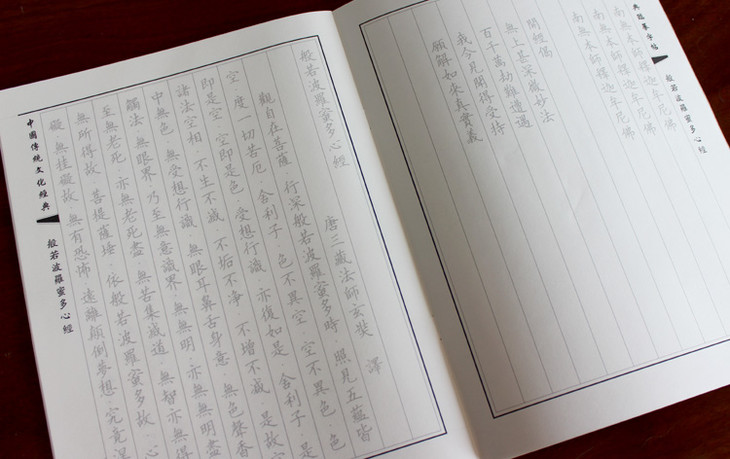 典臨摹字帖
般若波羅蜜多心經
南無本師釋迦牟尼佛
南無本師釋迦牟尼佛
南無本師釋迦牟尼佛
開經偈
無上甚深微妙法
百千萬劫難遭遇
我今見聞得受持
願解如來真實義
般若波羅蜜多心經 唐三藏法師玄奘 譯
觀自在菩薩·行深般若波羅蜜多時·照見五蘊皆
空·度一切苦厄·舍利子·色不異空·空不異色·色
即是空·空即是色·受想行識·亦復如是·舍利子·是
諸法空相·不生不滅·不垢不淨·不增不減·是故空
中無色·無受想行識·無眼耳鼻舌身意·無色聲香
觸法·無眼界·乃至無意識界·無無明·亦無無明盡
至無老死·亦無老死盡·無苦集滅道·無智亦無得
無所得故·菩提薩埵·依般若波羅蜜多故·心
礙·無挂礙故·無有恐怖·遠離顛倒夢想·究竟涅
中國傳統文化經典
般若波羅蜜多心經